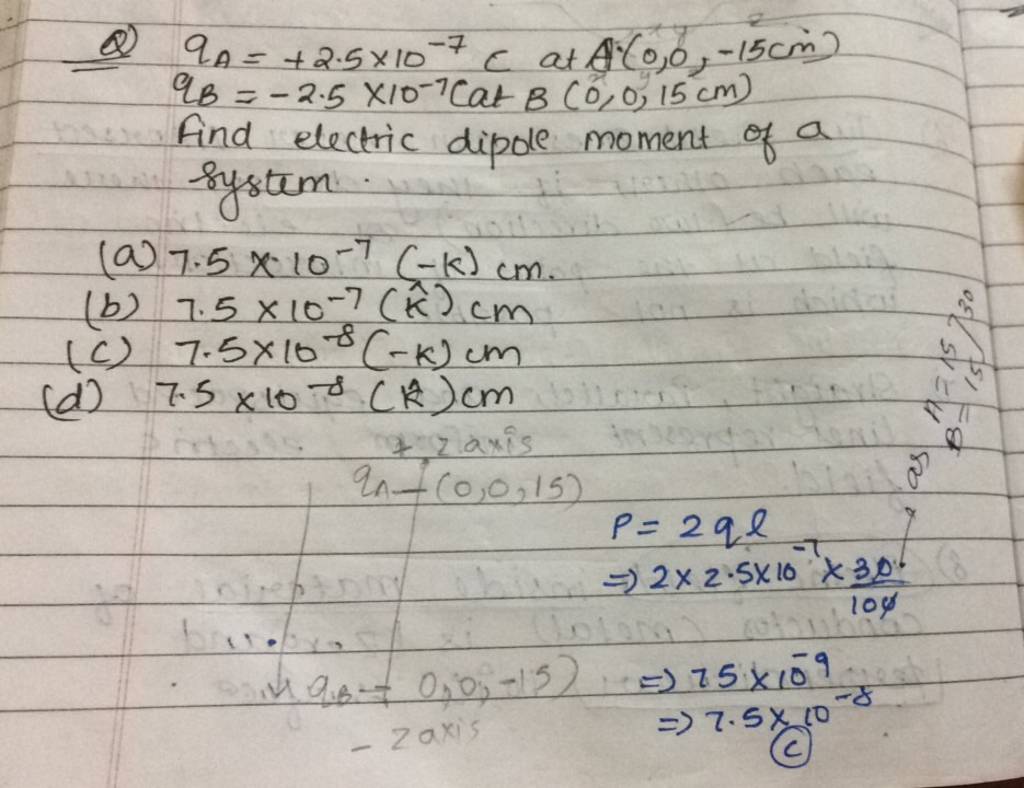 Q) qA = +2.5×10⁻⁷ C at A (0,0,-15cm)
qB = -2.5 ×10⁻⁷ C at B (0,0,15cm)
find electric dipole moment of a
system.
(a) 7.5 × 10⁻⁷ (-k) cm.
(b) 7.5 ×10⁻⁷ (k̂) cm
(c) 7.5×10⁻⁸ (-k) cm
(d) 7.5 ×10⁻⁸ (k̂) cm
+ z axis
qA - (0,0,15)
as A = 15
B = 15 30
P = 2ql
⇒ 2× 2.5×10⁻⁷ × 30/100
qB = 0,0,-15)
- z axis
⇒ 75×10⁻⁹
⇒ 7.5×10⁻⁸
(c)